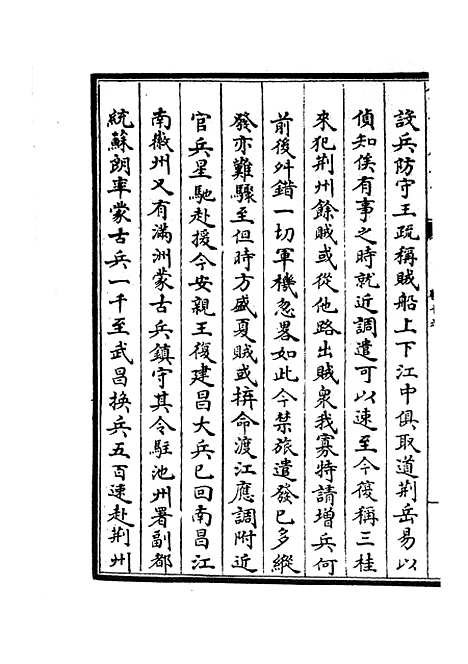 設兵防守王疏稱賊船上下江中俱取道荆岳易以
偵知俟有事之時就近調遣可以速至今復稱三桂
來犯荆州餘賊或從他路出賊衆我寡特請增兵何
前後舛錯一切軍機忽畧如此今禁旅遣發已多縱
發亦難驟至但時方盛夏賊或拚命渡江應調附近
官兵星馳赴援今安親王復建昌大兵已回南昌江
南徽州又有滿洲蒙古兵鎮守其令駐池州署副都
統蘇朗率蒙古兵一千至武昌換兵五百速赴荆州